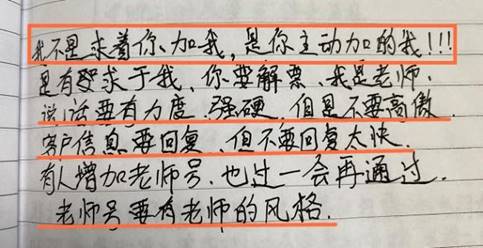 我不是求着你加我，是你主动加的我！！！
是有要求于我，你要解票、我是老师．
说话要有力度．强硬．但是不要高傲．
客户信息要回复，但不要回复太快．
有人增加老师号，也过一会再通过．
老师号要有老师的风格．